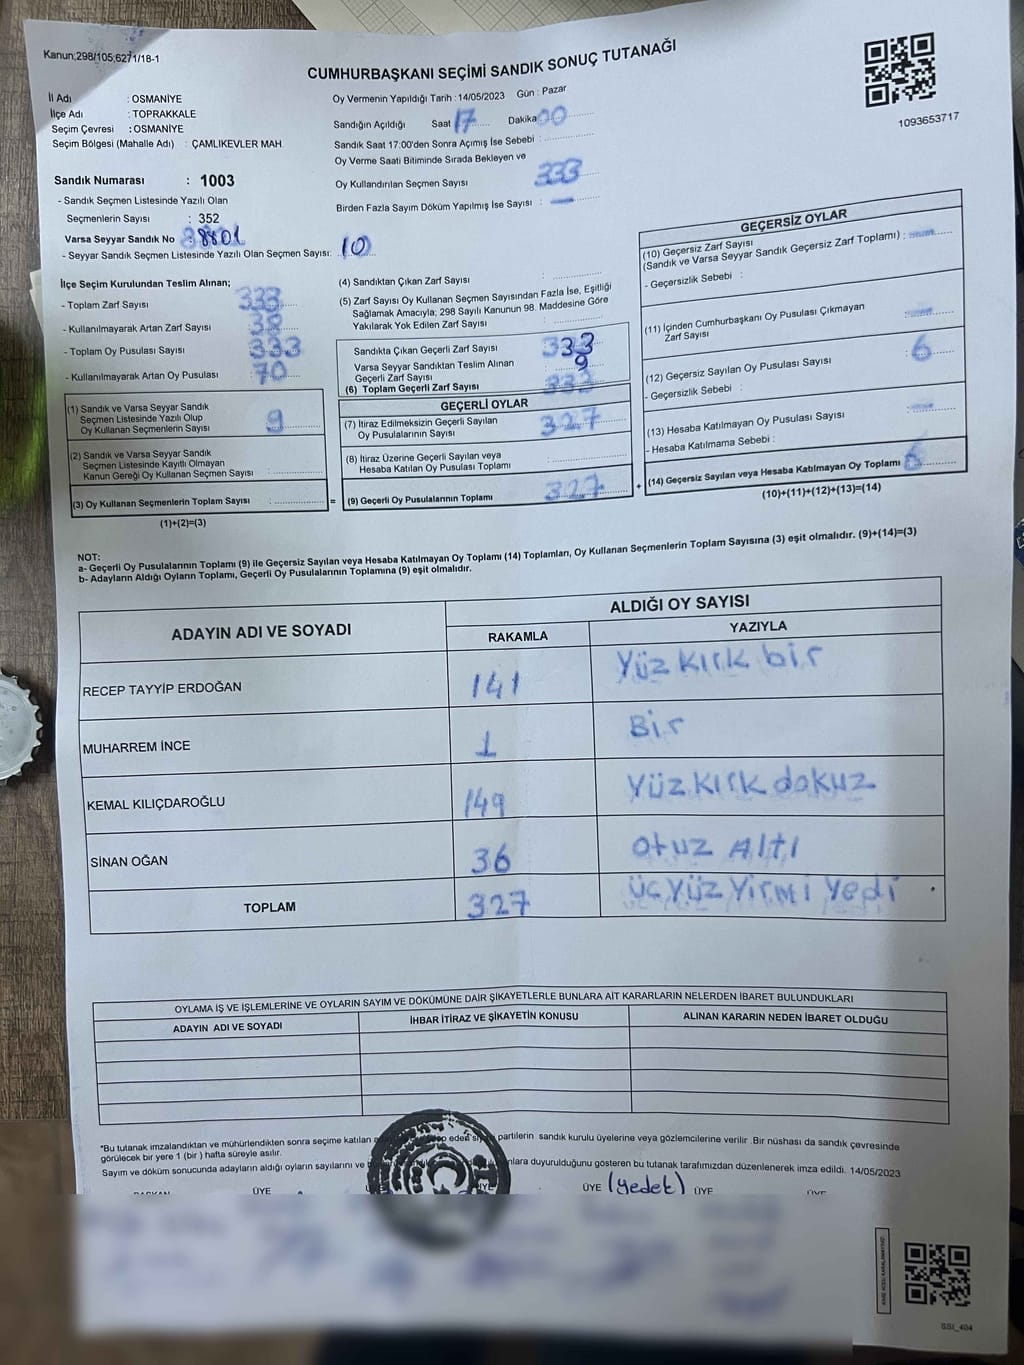 Kanun;298/105;6271/18-1
CUMHURBAŞKANI SEÇİMİ SANDIK SONUÇ TUTANAĞI
1093653717
İl Adı : OSMANİYE
İlçe Adı : TOPRAKKALE
Seçim Çevresi : OSMANİYE
Seçim Bölgesi (Mahalle Adı) : ÇAMLIKEVLER MAH.
Oy Vermenin Yapıldığı Tarih : 14/05/2023 Gün : Pazar
Sandığın Açıldığı Saat 17 Dakika 00
Sandık Saat 17.00'den Sonra Açımış İse Sebebi :
Oy Verme Saati Bitiminde Sırada Bekleyen ve
Oy Kullandırılan Seçmen Sayısı 333
Birden Fazla Sayım Döküm Yapılmış İse Sayısı : —
Sandık Numarası : 1003
- Sandık Seçmen Listesinde Yazılı Olan
Seçmenlerin Sayısı : 352
Varsa Seyyar Sandık No : 8801
- Seyyar Sandık Seçmen Listesinde Yazılı Olan Seçmen Sayısı: 10
İlçe Seçim Kurulundan Teslim Alınan;
- Toplam Zarf Sayısı 333
- Kullanılmayarak Artan Zarf Sayısı 38
- Toplam Oy Pusulası Sayısı 333
- Kullanılmayarak Artan Oy Pusulası 70
(1) Sandık ve Varsa Seyyar Sandık
Seçmen Listesinde Yazılı Olup
Oy Kullanan Seçmenlerin Sayısı 9
(2) Sandık ve Varsa Seyyar Sandık
Seçmen Listesinde Kayıtlı Olmayan
Kanun Gereği Oy Kullanan Seçmen Sayısı :
(3) Oy Kullanan Seçmenlerin Toplam Sayısı : =
(1)+(2)=(3)
(4) Sandıktan Çıkan Zarf Sayısı :
(5) Zarf Sayısı Oy Kullanan Seçmen Sayısından Fazla İse, Eşitliği
Sağlamak Amacıyla; 298 Sayılı Kanunun 98. Maddesine Göre
Yakılarak Yok Edilen Zarf Sayısı :
Sandıkta Çıkan Geçerli Zarf Sayısı 333
Varsa Seyyar Sandıktan Teslim Alınan
Geçerli Zarf Sayısı 9
(6) Toplam Geçerli Zarf Sayısı 333
GEÇERLİ OYLAR
(7) İtiraz Edilmeksizin Geçerli Sayılan
Oy Pusulalarının Sayısı 327
(8) İtiraz Üzerine Geçerli Sayılan veya
Hesaba Katılan Oy Pusulası Toplamı :
(9) Geçerli Oy Pusulalarının Toplamı 327 +
GEÇERSİZ OYLAR
(10) Geçersiz Zarf Sayısı
(Sandık ve Varsa Seyyar Sandık Geçersiz Zarf Toplamı) : —
- Geçersizlik Sebebi :
(11) İçinden Cumhurbaşkanı Oy Pusulası Çıkmayan
Zarf Sayısı : —
(12) Geçersiz Sayılan Oy Pusulası Sayısı : 6
- Geçersizlik Sebebi :
(13) Hesaba Katılmayan Oy Pusulası Sayısı : —
- Hesaba Katılmama Sebebi :
(14) Geçersiz Sayılan veya Hesaba Katılmayan Oy Toplamı 6
(10)+(11)+(12)+(13)=(14)
NOT:
a- Geçerli Oy Pusulalarının Toplamı (9) ile Geçersiz Sayılan veya Hesaba Katılmayan Oy Toplamı (14) Toplamları, Oy Kullanan Seçmenlerin Toplam Sayısına (3) eşit olmalıdır. (9)+(14)=(3)
b- Adayların Aldığı Oyların Toplamı, Geçerli Oy Pusulalarının Toplamına (9) eşit olmalıdır.
ADAYIN ADI VE SOYADI ALDIĞI OY SAYISI
RAKAMLA YAZIYLA
RECEP TAYYİP ERDOĞAN 141 Yüz kırk bir
MUHARREM İNCE 1 Bir
KEMAL KILIÇDAROĞLU 149 Yüz kırk dokuz
SİNAN OĞAN 36 otuz Altı
TOPLAM 327 üç yüz yirmi yedi
OYLAMA İŞ VE İŞLEMLERİNE VE OYLARIN SAYIM VE DÖKÜMÜNE DAİR ŞİKAYETLERLE BUNLARA AİT KARARLARIN NELERDEN İBARET BULUNDUKLARI
ADAYIN ADI VE SOYADI İHBAR İTİRAZ VE ŞİKAYETİN KONUSU ALINAN KARARIN NEDEN İBARET OLDUĞU
*Bu tutanak imzalandıktan ve mühürlendikten sonra seçime katılan eden partilerin sandık kurulu üyelerine veya gözlemcilerine verilir .Bir nüshası da sandık çevresinde
görülecek bir yere 1 (bir ) hafta süreyle asılır.
Sayım ve döküm sonucunda adayların aldığı oyların sayılarını ve duyurulduğunu gösteren bu tutanak tarafımızdan düzenlenerek imza edildi. 14/05/2023
BAŞKAN ÜYE ÜYE ÜYE (yedek) ÜYE ÜYE
SSI_404